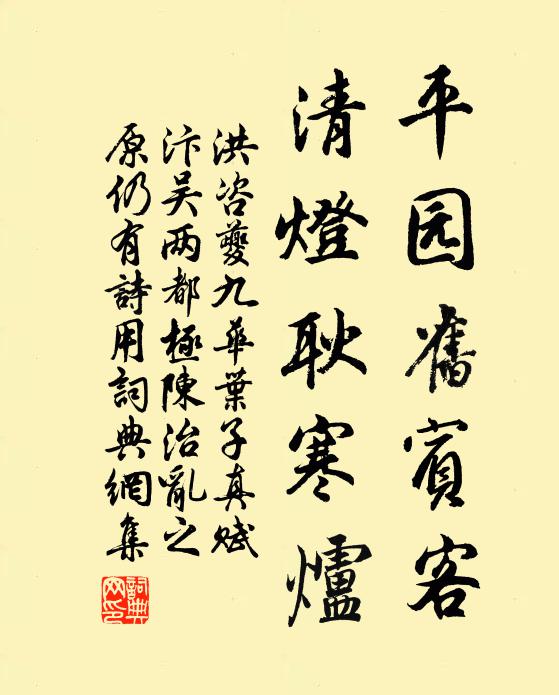 平园舊賓客
清燈耿寒爐
洪咨夔九華葉子真賦
汴吴两都極陳治亂之
原仍有詩用詞典網集
詞典
网印